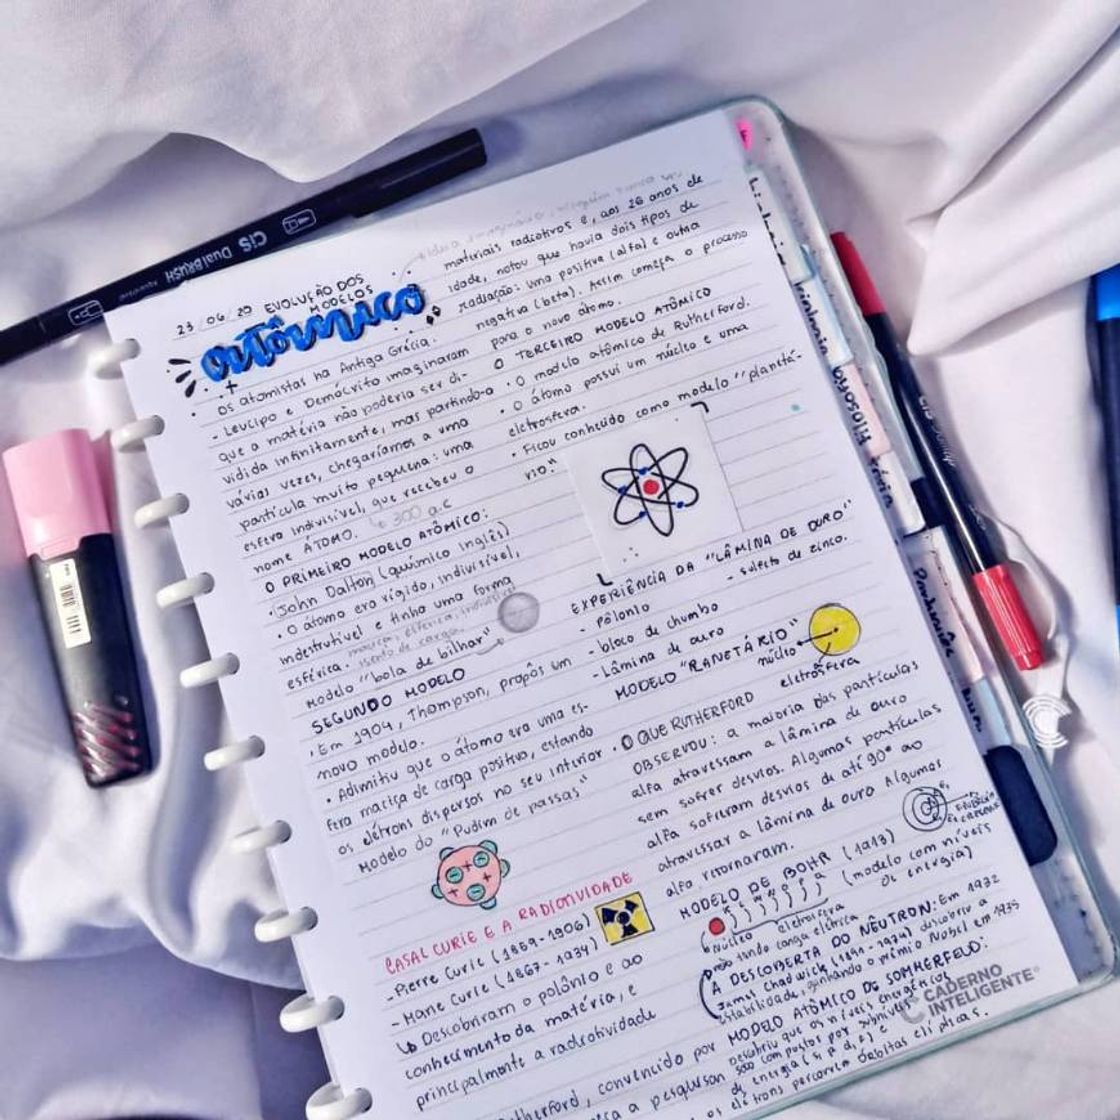 23/06/20 EVOLUÇÃO DOS
MODELOS
atômico
os atomistas na Antiga Grécia.
- Leucipo e Demócrito imaginaram
que a matéria não poderia ser di-
vidida infinitamente, mas partindo-a
várias vezes, chegaríamos a uma
partícula muito pequena: uma
esfera indivisível, que recebeu o
nome ÁTOMO.
↳ 300 a.c
O PRIMEIRO MODELO ATÔMICO:
• John Dalton (químico inglês)
• O átomo era rígido, indivisível,
indestrutível e tinha uma forma
esférica. maciça, esférica, indivisível
isento de carga.
modelo "bola de bilhar"
SEGUNDO MODELO
• Em 1904, Thompson, propôs um
novo modelo.
• Admitiu que o átomo era uma es-
fera maciça de carga positiva, estando
os elétrons dispersos no seu interior
Modelo do "Pudim de passas"
CASAL CURIE E A RADIOTIVIDADE
- Pierre Curie (1859-1906)
- Marie Curie (1867-1934)
↳ Descobriram o polônio e ao
conhecimento da matéria, e
principalmente a radiotividade
materiais radiotivos e, aos 26 anos de
idade, notou que havia dois tipos de
radiação: uma positiva (alfa) e outra
negativa (beta). Assim começa o processo
para o novo átomo.
O TERCEIRO MODELO ATÔMICO
• O modelo atômico de Rutherford.
• O átomo possuí um núcleo e uma
eletrosfera.
• Ficou conhecido como modelo "planetá-
rio."
EXPERIÊNCIA DA "LÂMINA DE OURO"
- Pôlonio
- sulecto de zinco.
- bloco de chumbo
- Lâmina de ouro
MODELO "RANETÁRIO"
núcleo
eletrosfera
• O QUE RUTHERFORD
OBSERVOU: a maioria das partículas
alfa atravessam a lâmina de ouro
sem sofrer desvios. Algumas partículas
alfa sofreram desvios de até 90° ao
atravessar a lâmina de ouro Algumas
alfa retornaram.
MODELO DE BOHR (1913)
(modelo com níveis
de energia)
núcleo eletrosfera
não tendo carga elétrica
A DESCOBERTA DO NÊUTRON: Em 1932
James Chadwick (1891-1974) descobriu a
estabilidade, ganhando o prêmio Nobel em 1935
MODELO ATÔMICO DE SOMMERFELD:
Descobriu que os níveis energéticos
são compostos por subníveis
de energia (s, p, d, f) e
os elétrons percorrem órbitas elípticas.
Rutherford, convencido por
a pesquisar
CADERNO
INTELIGENTE
CiS Dual BRUSH
Filosofia